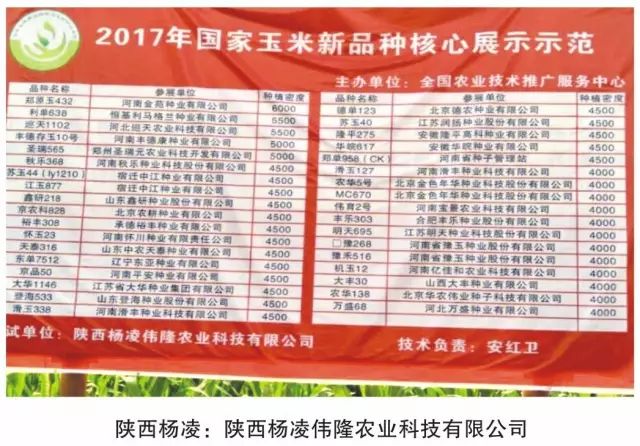 2017年国家玉米新品种核心展示示范
主办单位：全国农业技术推广服务中心
品种名称 参展单位 种植密度
郑原玉432 河南金苑种业有限公司 6000
利单638 恒基利马格兰种业有限公司 5500
巡天1102 河北巡天农业科技有限公司 5500
丰德存玉10号 河南丰德康种业有限公司 5000
圣瑞565 郑州圣瑞元农业科技开发有限公司 5000
秋乐368 河南秋乐种业科技股份有限公司 4500
苏玉44（ly1210） 宿迁中江种业有限公司 4500
江玉877 宿迁中江种业有限公司 4500
鑫研218 山东鑫研种业股份有限公司 4500
京农科828 北京农耕种业有限公司 4500
裕丰308 承德裕丰种业有限公司 4500
怀玉23 河南怀川种业有限责任公司 4500
天泰316 山东中农天泰种业有限公司 4500
东单7512 辽宁东亚种业有限公司 4500
京品50 河南平安种业有限公司 4500
大华1146 江苏省大华种业集团有限公司 4500
登海533 山东登海种业股份有限公司 4500
滑玉338 河南滑丰种业科技有限公司 4500
品种名称 参展单位 种植密度
德单123 北京德农种业有限公司 4500
苏玉40 江苏润扬种业有限公司 4500
隆平275 安徽隆平高科种业有限公司 4500
华皖617 安徽华皖种业有限公司 4500
郑单958（CK） 河南省种子管理站 4000
滑玉127 河南滑丰种业科技有限公司 4000
农华5号 北京金色年华种业科技股份有限公司 4000
MC670 北京金色年华种业科技股份有限公司 4000
伟育2号 河南宝景农业科技有限公司 4000
丰乐303 合肥丰乐种业股份有限公司 4000
明天695 江苏明天种业科技股份有限公司 4000
豫268 河南省豫玉种业股份有限公司 4000
豫禾516 河南省豫玉种业股份有限公司 4000
机玉12 河南亿佳和农业科技有限公司 4000
大丰30 山西大丰种业有限公司 4000
农华138 北京华农伟业种子科技有限公司 4000
万盛68 河北万盛种业有限公司 4000
试单位：陕西杨凌伟隆农业科技有限公司
技术负责：安红卫
陕西杨凌：陕西杨凌伟隆农业科技有限公司